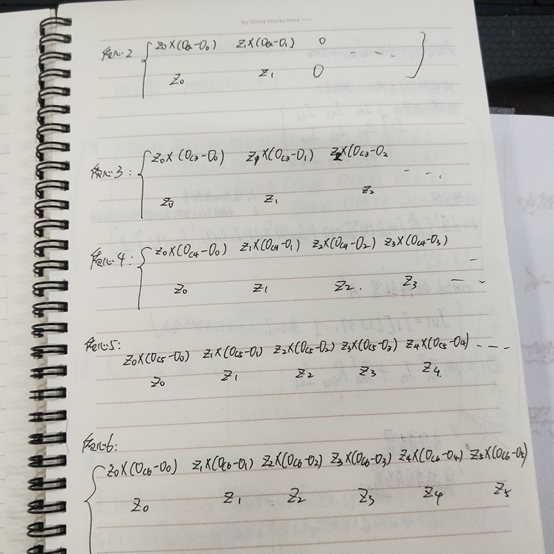 质心2 { Z₀×(Oc₂-O₀) Z₁×(Oc₂-O₁) 0 - - - }
Z₀ Z₁ 0
质心3: { Z₀×(Oc₃-O₀) Z₁×(Oc₃-O₁) Z₂×(Oc₃-O₂ - - -
Z₀ Z₁ Z₂
质心4: { Z₀×(Oc₄-O₀) Z₁×(Oc₄-O₁) Z₂×(Oc₄-O₂) Z₃×(Oc₄-O₃) -
Z₀ Z₁ Z₂. Z₃ - -
质心5:
Z₀×(Oc₅-O₀) Z₁×(Oc₅-O₁) Z₂×(Oc₅-O₂) Z₃×(Oc₅-O₃) Z₄×(Oc₅-O₄) - - - -
Z₀ Z₁ Z₂ Z₃ Z₄
质心6:
{ Z₀×(Oc₆-O₀) Z₁×(Oc₆-O₁) Z₂×(Oc₆-O₂) Z₃×(Oc₆-O₃) Z₄×(Oc₆-O₄) Z₅×(Oc₆-O₅)
Z₀ Z₁ Z₂ Z₃ Z₄ Z₅